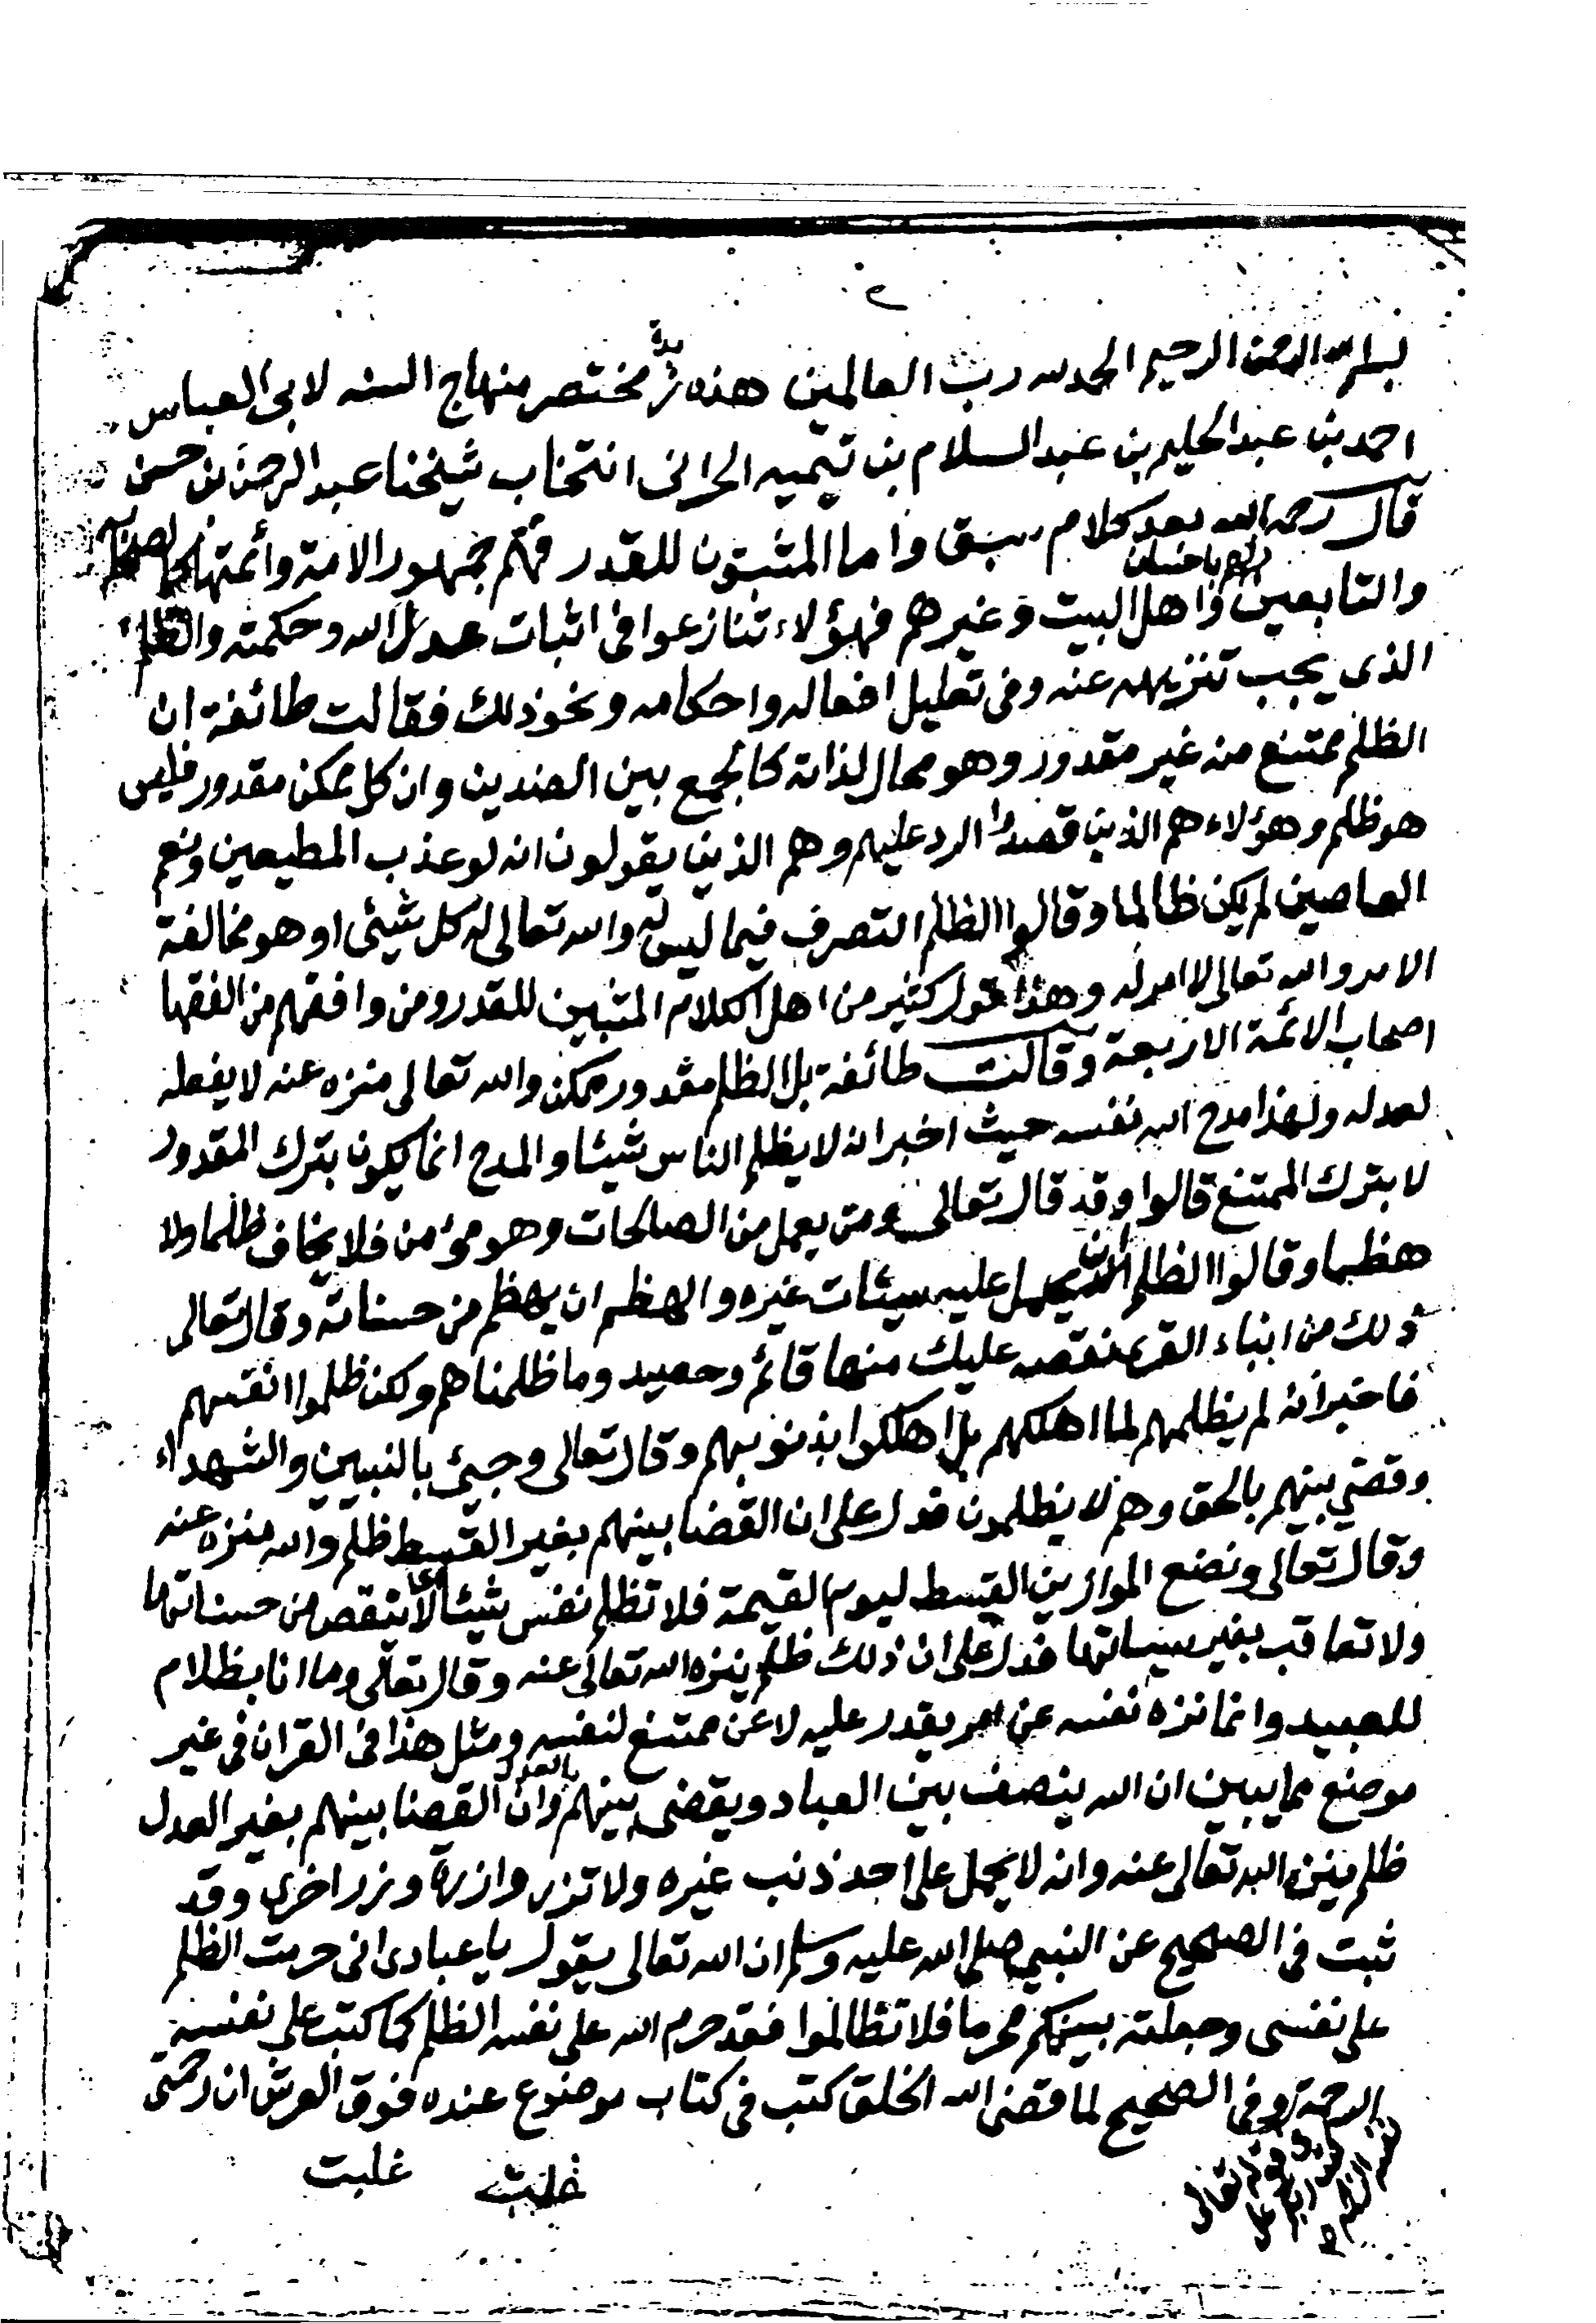 ٢
بسم الله الرحمن الرحيم الحمد لله رب العالمين هذه زبدة مختصر منهاج السنه لابى العباس
احمد بن عبد الحليم بن عبد السلام بن تيميه الحرانى انتخاب شيخنا عبد الرحمن بن حسن
قال رحمه الله بعد كلام سبق واما المثبتون للقدر فهم جمهور الامة وأئمتها كالصحابة
والتابعين لهم باحسان واهل البيت وغيرهم فهؤلاء تنازعوا فى اثبات عدل الله وحكمته والظلم
الذى يجب تنزيهه عنه وفى تعليل افعاله واحكامه ونحو ذلك فقالت طائفة ان
الظلم ممتنع منه غير مقدور وهو محال لذاته كالجمع بين الضدين وان كل ممكن مقدور فليس
هو ظلم وهؤلاء هم الذين قصدوا الرد عليهم وهم الذين يقولون انه لو عذب المطيعين ونعم
العاصين لم يكن ظالما وقالوا الظلم التصرف فيما ليس له والله تعالى له كل شيئى او هو مخالفة
الامر والله تعالى لا امر له وهذا قول كثير من اهل الكلام المثبتين للقدر ومن وافقهم من الفقها
اصحاب الائمة الاربعة وقالت طائفة بل الظلم مقدور ممكن والله تعالى منزه عنه لا يفعله
لعدله ولهذا مدح الله نفسه حيث اخبر انه لا يظلم الناس شيئا والمدح انما يكون بترك المقدور
لا بترك الممتنع قالوا وقد قال تعالى ومن يعمل من الصالحات وهو مؤمن فلا يخاف ظلما ولا
هظما وقالوا الظلم ان يحمل عليه سيئات غيره والهظم ان يهظم من حسناته وقال تعالى
ذلك من ابناء القرى نقصه عليك منها قائم وحصيد وما ظلمناهم ولكن ظلموا انفسهم
فاخبر انه لم يظلمهم لما اهلكهم بل اهلكوا بذنوبهم وقال تعالى وجيئ بالنبيين والشهداء
وقضي بينهم بالحق وهم لا يظلمون فدل على ان القضا بينهم بغير القسط ظلم والله منزه عنه
وقال تعالى ونضع الموازين القسط ليوم القيمة فلا تظلم نفس شيئا اى لا ينتقص من حسناتها
ولا تعاقب بغير سيئاتها فدل على ان ذلك ظلم ينزه الله تعالى عنه وقال تعالى وما انا بظلام
للعبيد وانما نزه نفسه عن امر يقدر عليه لا عن ممتنع لنفسه ومثل هذا فى القران فى غير
موضع مما يبين ان الله ينصف بين العباد ويقضى بينهم بالعدل وان القضا بينهم بغير العدل
ظلم ينزه الله تعالى عنه وانه لا يحمل على احد ذنب غيره ولا تزر وازرة وزر اخرى وقد
ثبت فى الصحيح عن النبي صلى الله عليه وسلم ان الله تعالى يقول يا عبادى انى حرمت الظلم
على نفسى وجعلته بينكم محرما فلا تظالموا فقد حرم الله على نفسه الظلم كما كتب على نفسه
الرحمة وفى الصحيح لما قضى الله الخلق كتب فى كتاب موضوع عنده فوق العرش ان رحمتى
غلبت غلبت